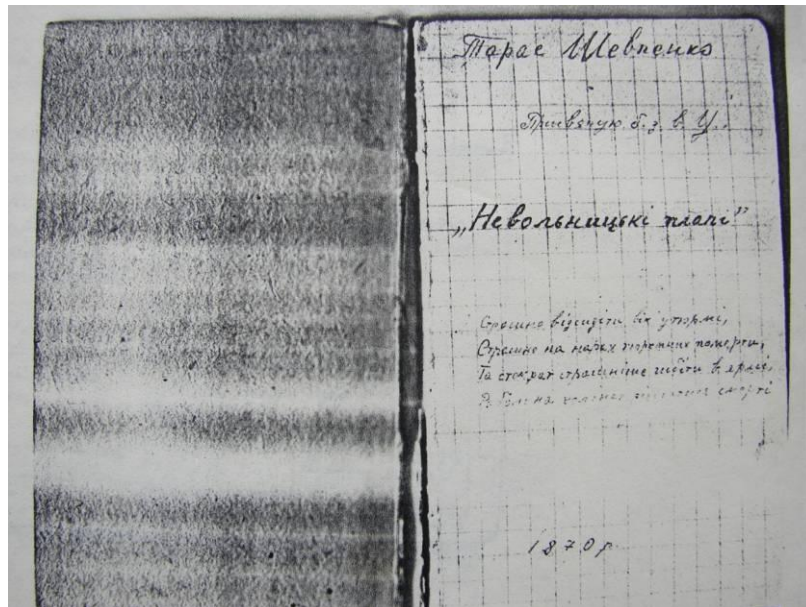 Тарас Шевченко
Присвячую б. з. в. У..
„Невольницькі плачі”
Страшно відсидіти вік у тюрмі,
Страшно на нарах тюремних померти,
Та стократ страшніше сидіти в ярмі,
смерті
1870 р.